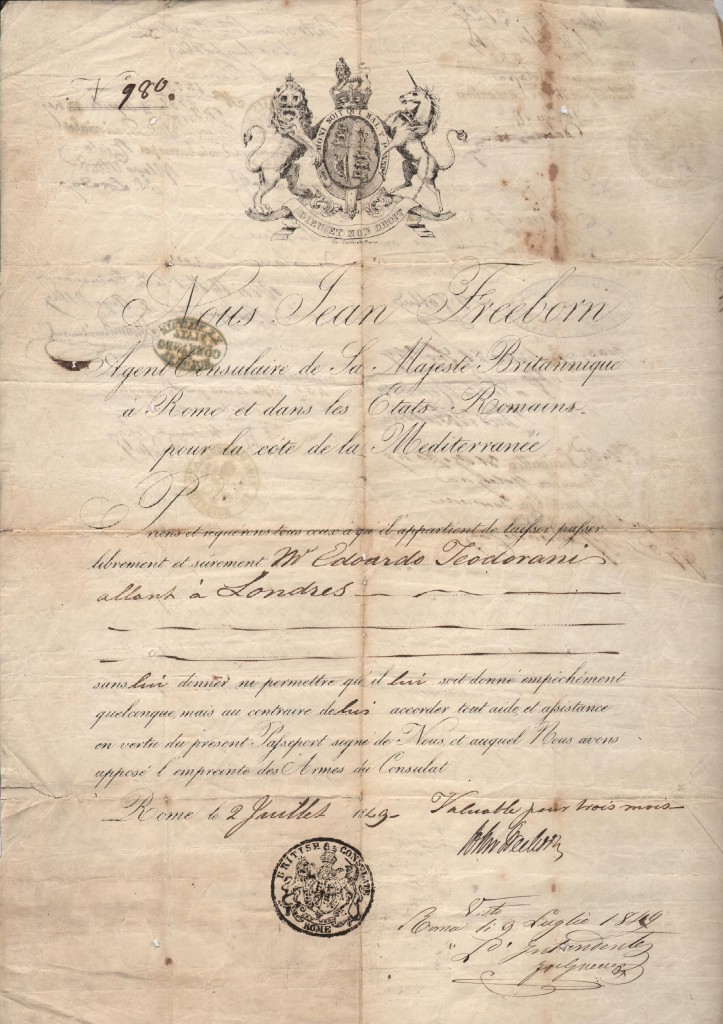 N 980.
HONI SOIT QUI MAL Y PENSE
DIEU ET MON DROIT
Nous Jean Freeborn
Agent Consulaire de Sa Majesté Britannique
à Rome et dans les Etats Romains
pour la côte de la Mediterranée
Prions et requerons tous ceux à qui il appartient de laisser passer
librement et sûrement Mr Edoardo Teodorani
allant à Londres
sans lui donner ni permettre qu'il lui soit donné empêchement
quelconque, mais au contraire de lui accorder tout aide et assistance
en vertu du present Passeport signé de Nous, et auquel Nous avons
apposé l'empreinte des Armes du Consulat
Rome le 2 Juillet 1849 Valuable pour trois mois
John Freeborn
BRITISH CONSULATE
ROME
Visto
Roma li 9 Luglio 1849